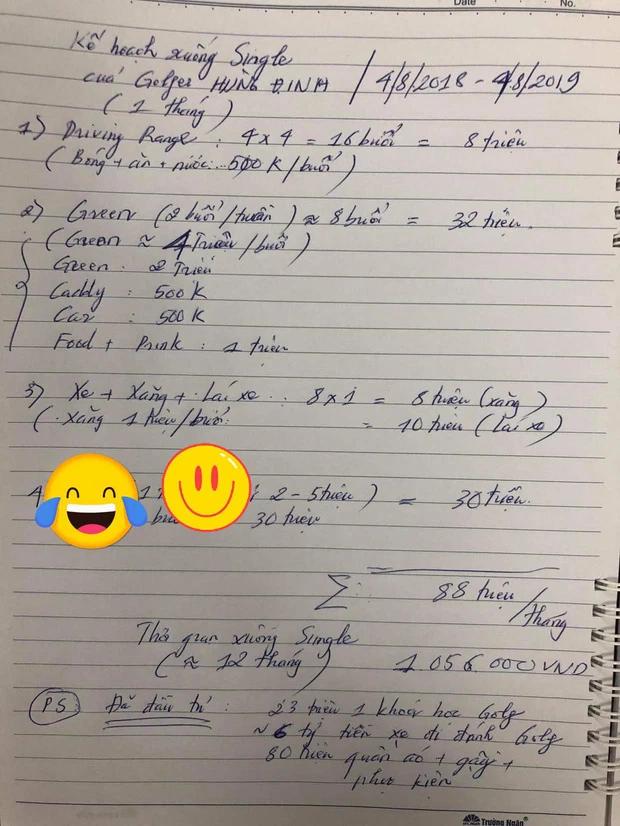 Date No.
Kế hoạch xuống Single
của Golfer HÙNG ĐINH / 4/8/2018 - 4/8/2019
( 1 tháng )
1) Driving Range : 4 x 4 = 16 buổi = 8 triệu
( Bóng + ăn + nước : 500 K / buổi )
2) Green ( 2 buổi / tuần ) ≈ 8 buổi = 32 triệu.
( Green ≈ 4 Triệu / buổi )
Green : 2 Triệu
Caddy : 500 K
Car : 500 K
Food + Drink : 1 triệu
3) Xe + Xăng + Lái xe : 8 x 1 = 8 triệu (xăng)
( Xăng 1 triệu / buổi = 10 triệu ( Lái xe)
2 - 5 triệu ) = 30 triệu.
30 triệu
Σ : 88 triệu / tháng
Thời gian xuống Single
( ≈ 12 tháng ) 1.056.000 VND
P.S: Đã đầu tư : 23 triệu 1 khoá học Golf
≈ 6 tỷ tiền xe đi đánh Golf
80 triệu quần áo + gậy +
phụ kiện
Trường Ngân